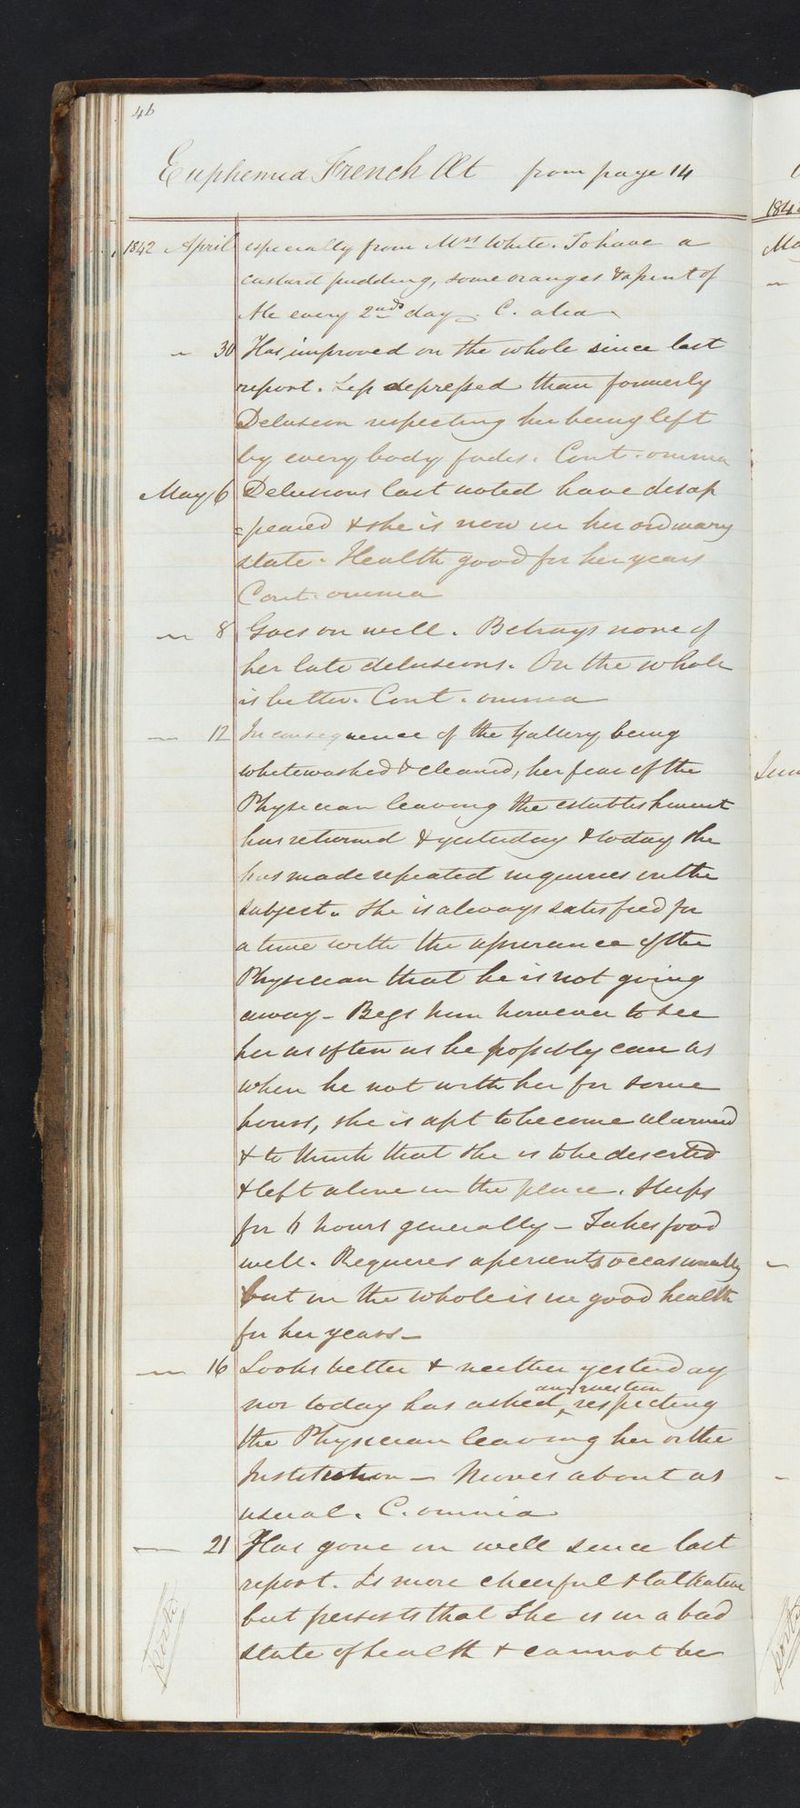 46
Euphemia French Æt from page 14
1842 April especially from Mrs White. To have a
custard pudding, some oranges & a pint of
Ale every 2nd day. C. alia
" 30 Has improved on the whole since last
report. Less depressed than formerly
Delusion respecting her being left
by every body fades. Cont. omnia
May 6 Delusions last noted have disap
=peared & she is now in her ordinary
state. Health good for her years
Cont. omnia
" 8 Goes on well. Betrays none of
her late delusions. On the whole
is better. Cont. omnia
— 12 In consequence of the Gallery being
whitewashed & cleaned, her fear of the
Physician leaving the establishment
has returned & yesterday & today she
has made repeated inquiries on the
subject. She is always satisfied for
a time with the assurance of the
Physician that he is not going
away – Begs him however to see
her as often as he possibly can as
when he not with her for some
hours, she is apt to become alarmed
& to think that she is to be deserted
& left alone in the place. Sleeps
for 6 hours generally – Takes food
well. Requires aperients occasionally
but on the whole is in good health
for her years –
— 16 Looks better & neither yesterday
any question
nor today has asked ^ respecting
the Physician leaving her or the
Institution – Moves about as
usual. C. omnia
— 21 Has gone on well since last
report. Is more cheerful & talkative
but persists that she is in a bad
state of health & cannot be
184
Ma